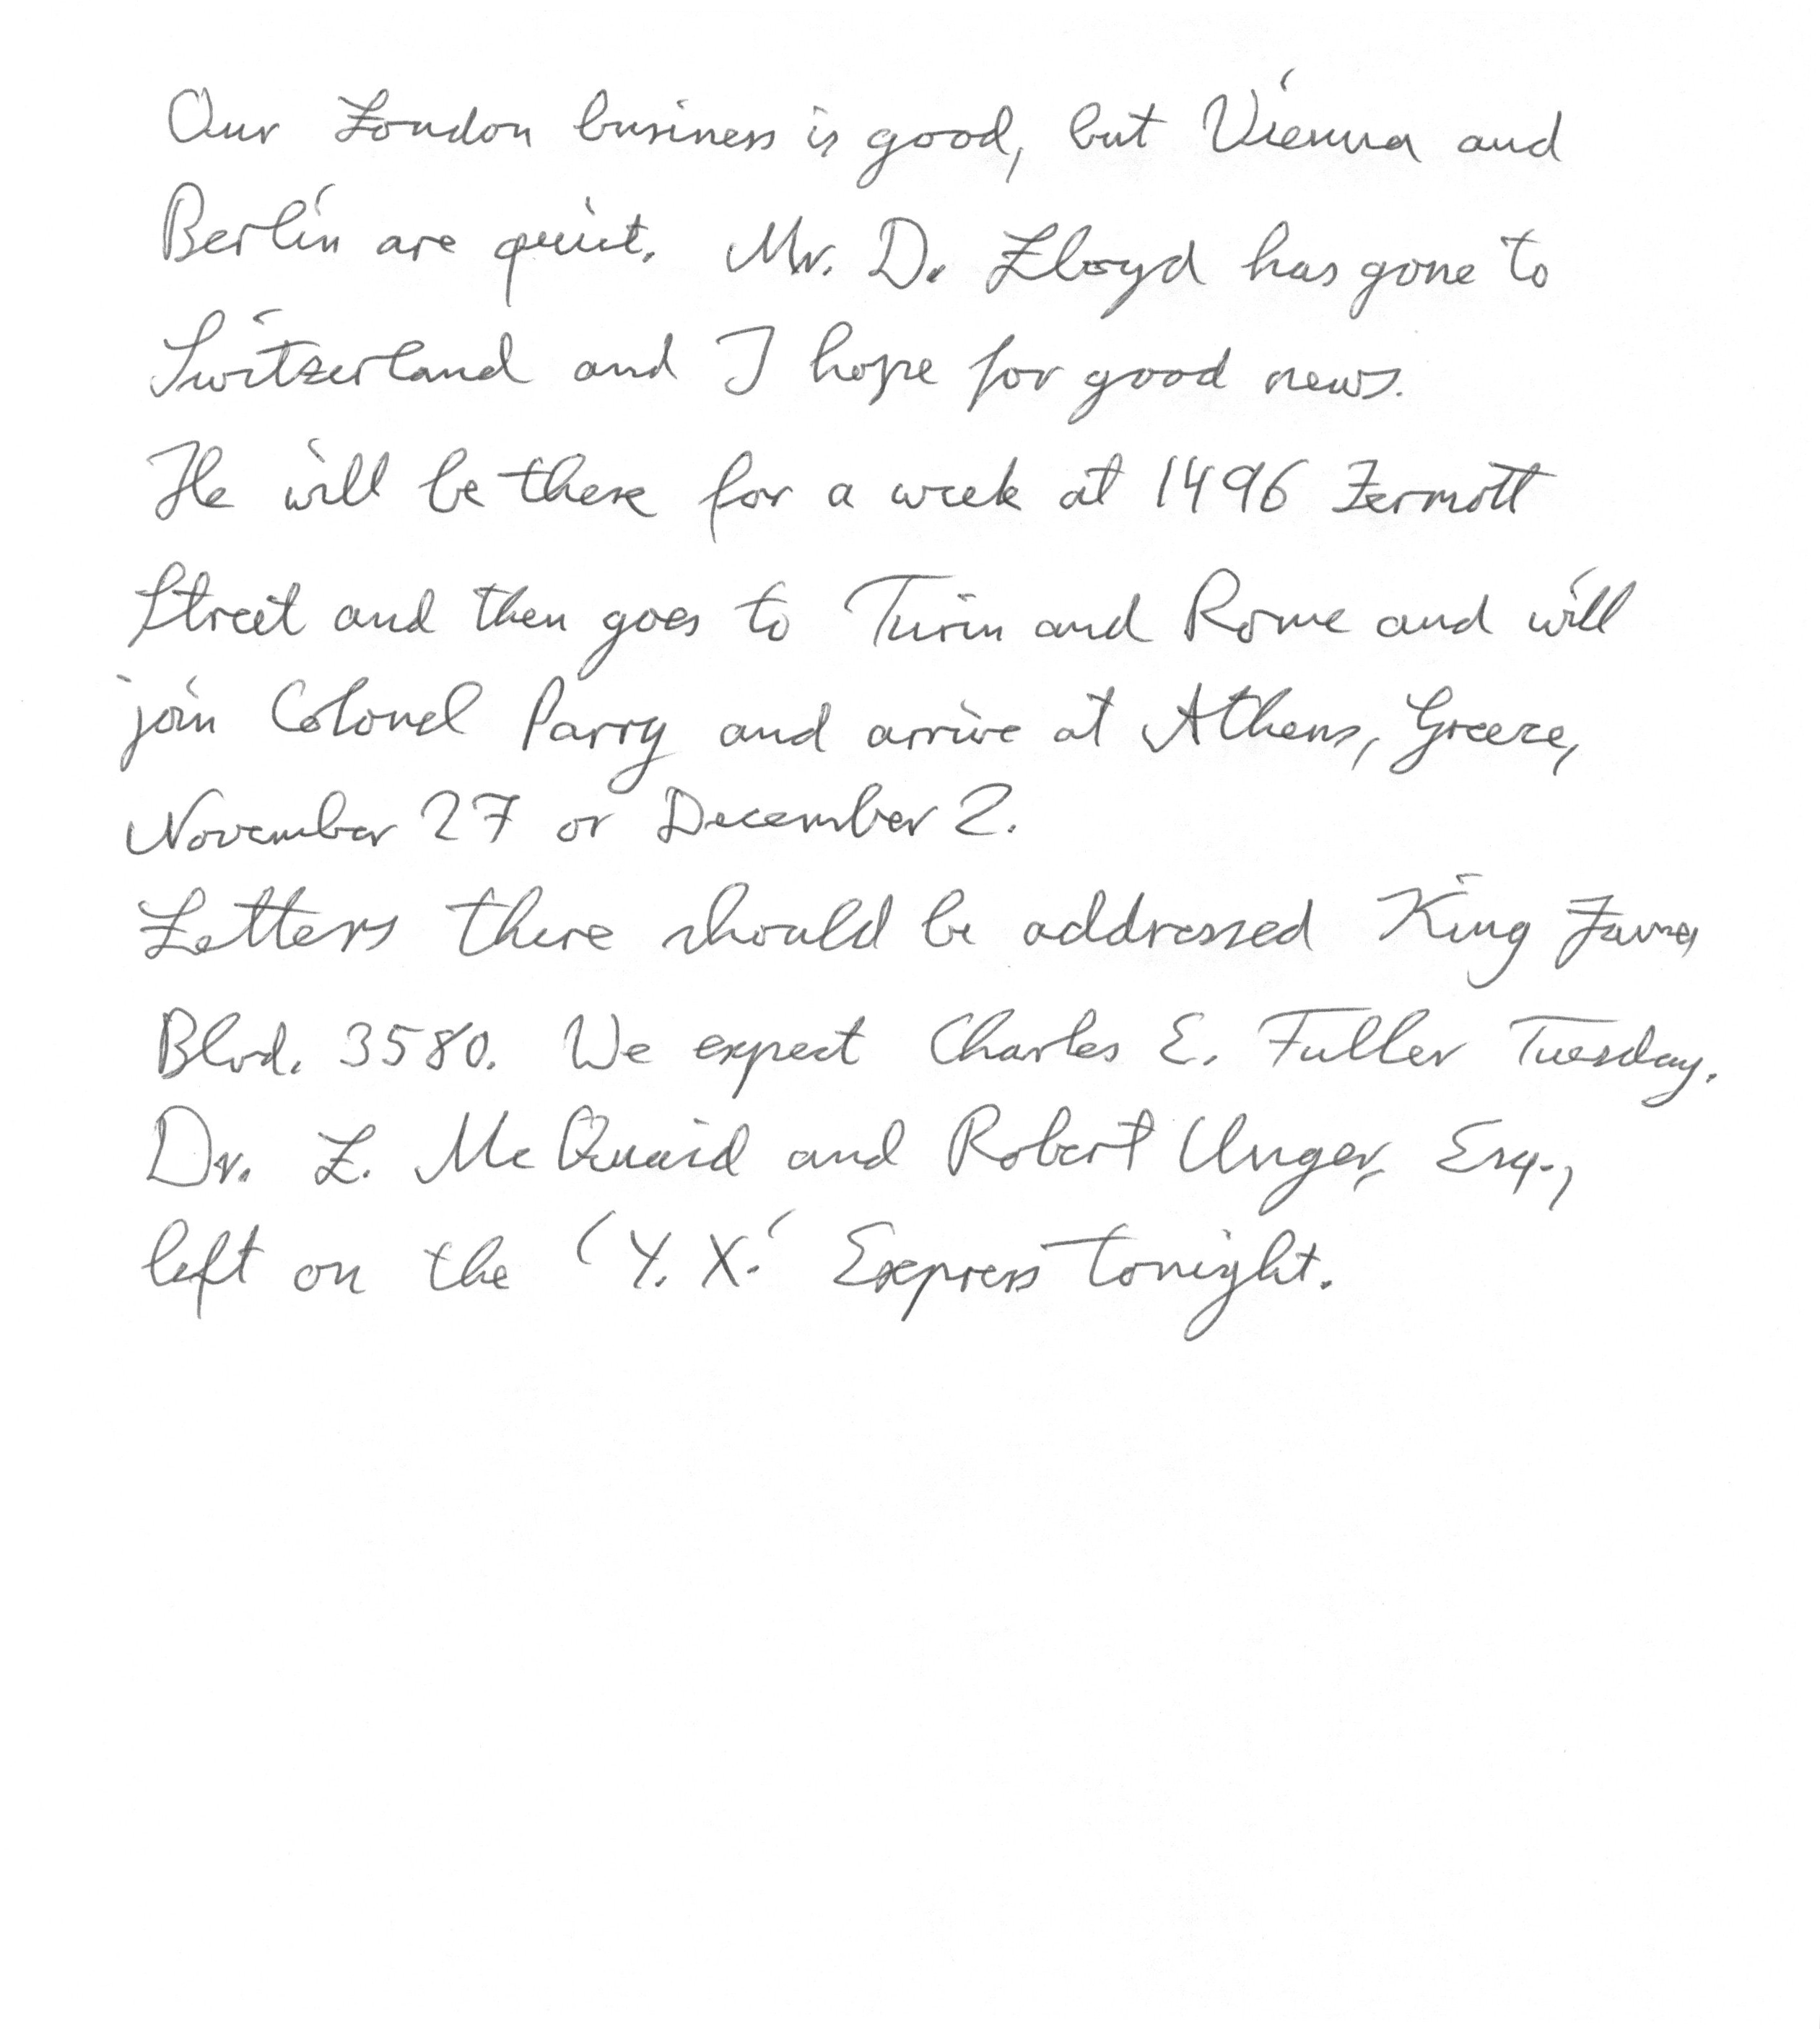 Our London business is good, but Vienna and
Berlin are quiet. Mr. D. Lloyd has gone to
Switzerland and I hope for good news.
He will be there for a week at 1496 Zermott
Street and then goes to Turin and Rome and will
join Colonel Parry and arrive at Athens, Greece,
November 27 or December 2.
Letters there should be addressed King James
Blvd. 3580. We expect Charles E. Fuller Tuesday.
Dr. L. McQuaid and Robert Unger, Esq.,
left on the 'Y. X.' Express tonight.